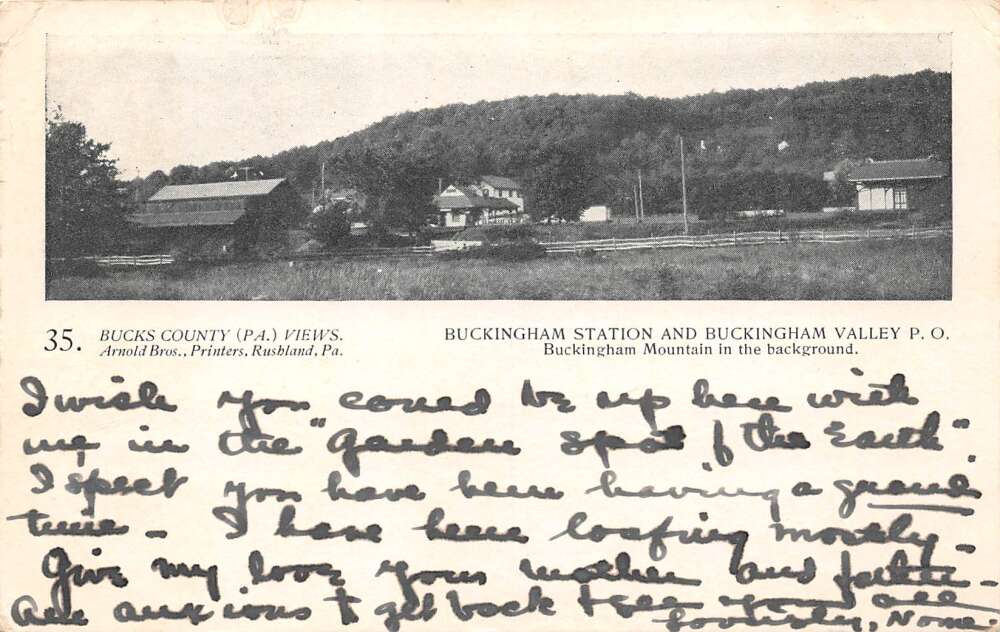 35. BUCKS COUNTY (PA.) VIEWS.
Arnold Bros., Printers, Rushland, Pa.
BUCKINGHAM STATION AND BUCKINGHAM VALLEY P. O.
Buckingham Mountain in the background.
I wish you could be up here with
me in the "garden spot of the Earth".
I spect you have been having a grand
time - I have been loafing mostly -
Give my love your mother and father -
Am anxious to get back & see you all
Lovingly,